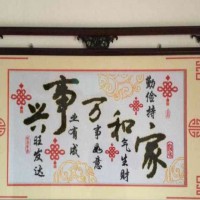 勤俭持家
和气生财
万事如意
事业有成
兴旺发达